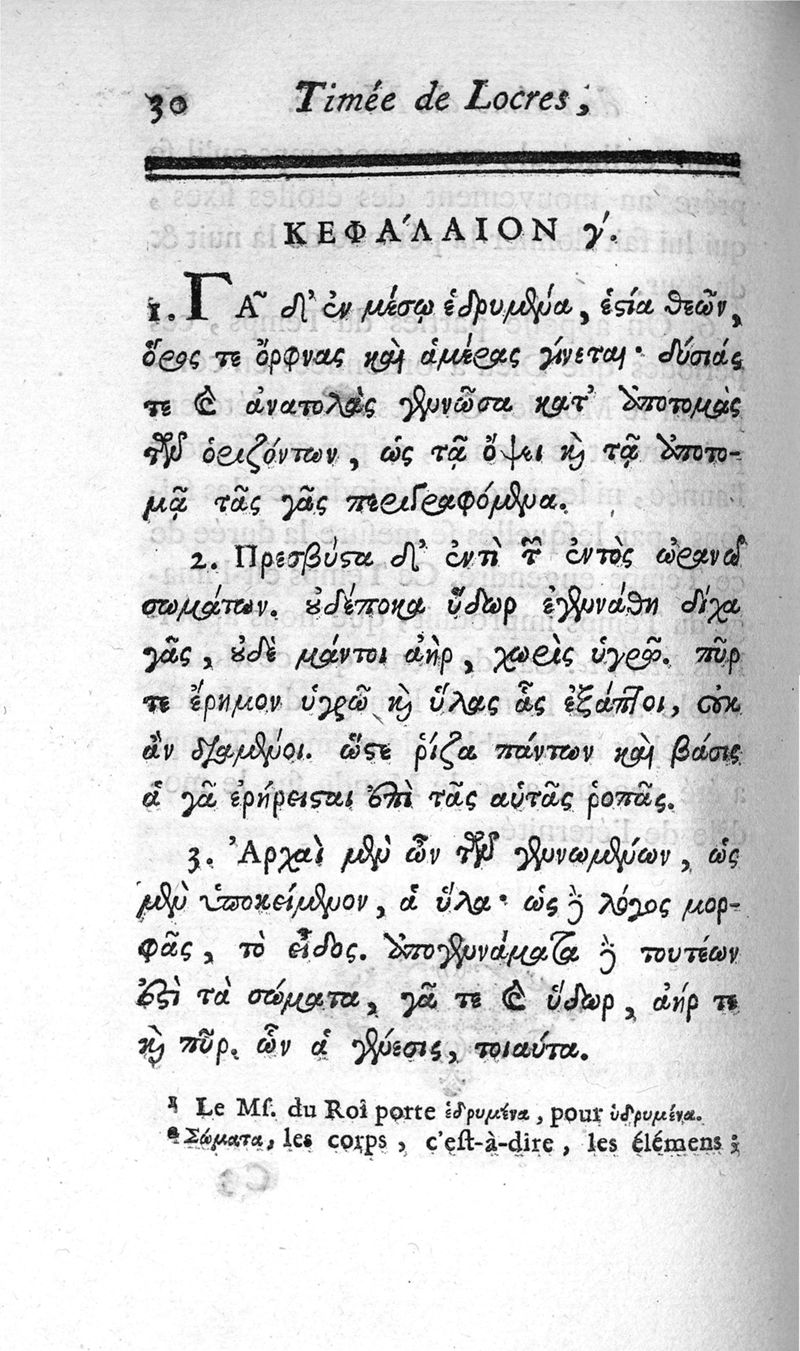 30 Timée de Locres,
ΚΕΦΑΛΑΙΟΝ γ΄.
1. ΓΑ͂ δ' ἐν μέσῳ ἑδρυμένα, ἑστία θεῶν,
ὅρος τε ὄρφνας καὶ ἁμέρας γίνεται· δύσιάς
τε καὶ ἀνατολὰς γεννῶσα κατ' ἀποτομὰς
τῶν ὁριζόντων, ὡς τᾷ ὄψει καὶ τᾷ ἀποτο-
μᾷ τᾶς γᾶς περιγραφόμενα.
2. Πρεσβύστα δ' ἐντὶ τῶν ἐντὸς ὠρανοῦ
σωμάτων. οὐδέποκα ὕδωρ ἐγεννάθη δίχα
γᾶς, οὐδὲ μάντοι ἀὴρ, χωρὶς ὑγροῦ. πῦρ
τε ἔρημον ὑγρῶ καὶ ὕλας ἇς ἐξάπτοι, οὐκ
ἂν διαμένοι. ὥστε ῥίζα πάντων καὶ βάσις
ἁ γᾶ ἐρήρεισται ἐπὶ τᾶς αὑτᾶς ῥοπᾶς.
3. Ἀρχαὶ μὲν ὦν τῶν γεννωμένων, ὡς
μὲν ὑποκείμενον, ἁ ὕλα· ὡς δὲ λόγος μορ-
φᾶς, τὸ εἶδος. ἀπογεννάματα δὲ τουτέων
ἐστὶ τὰ σώματα, γᾶ τε καὶ ὕδωρ, ἀήρ τε
καὶ πῦρ. ὧν ἁ γένεσις, τοιαύτα.
1 Le Ms. du Roi porte ἑδρυμένα, pour ἱδρυμένα.
Σώματα, les corps, c'est-à-dire, les élémens;